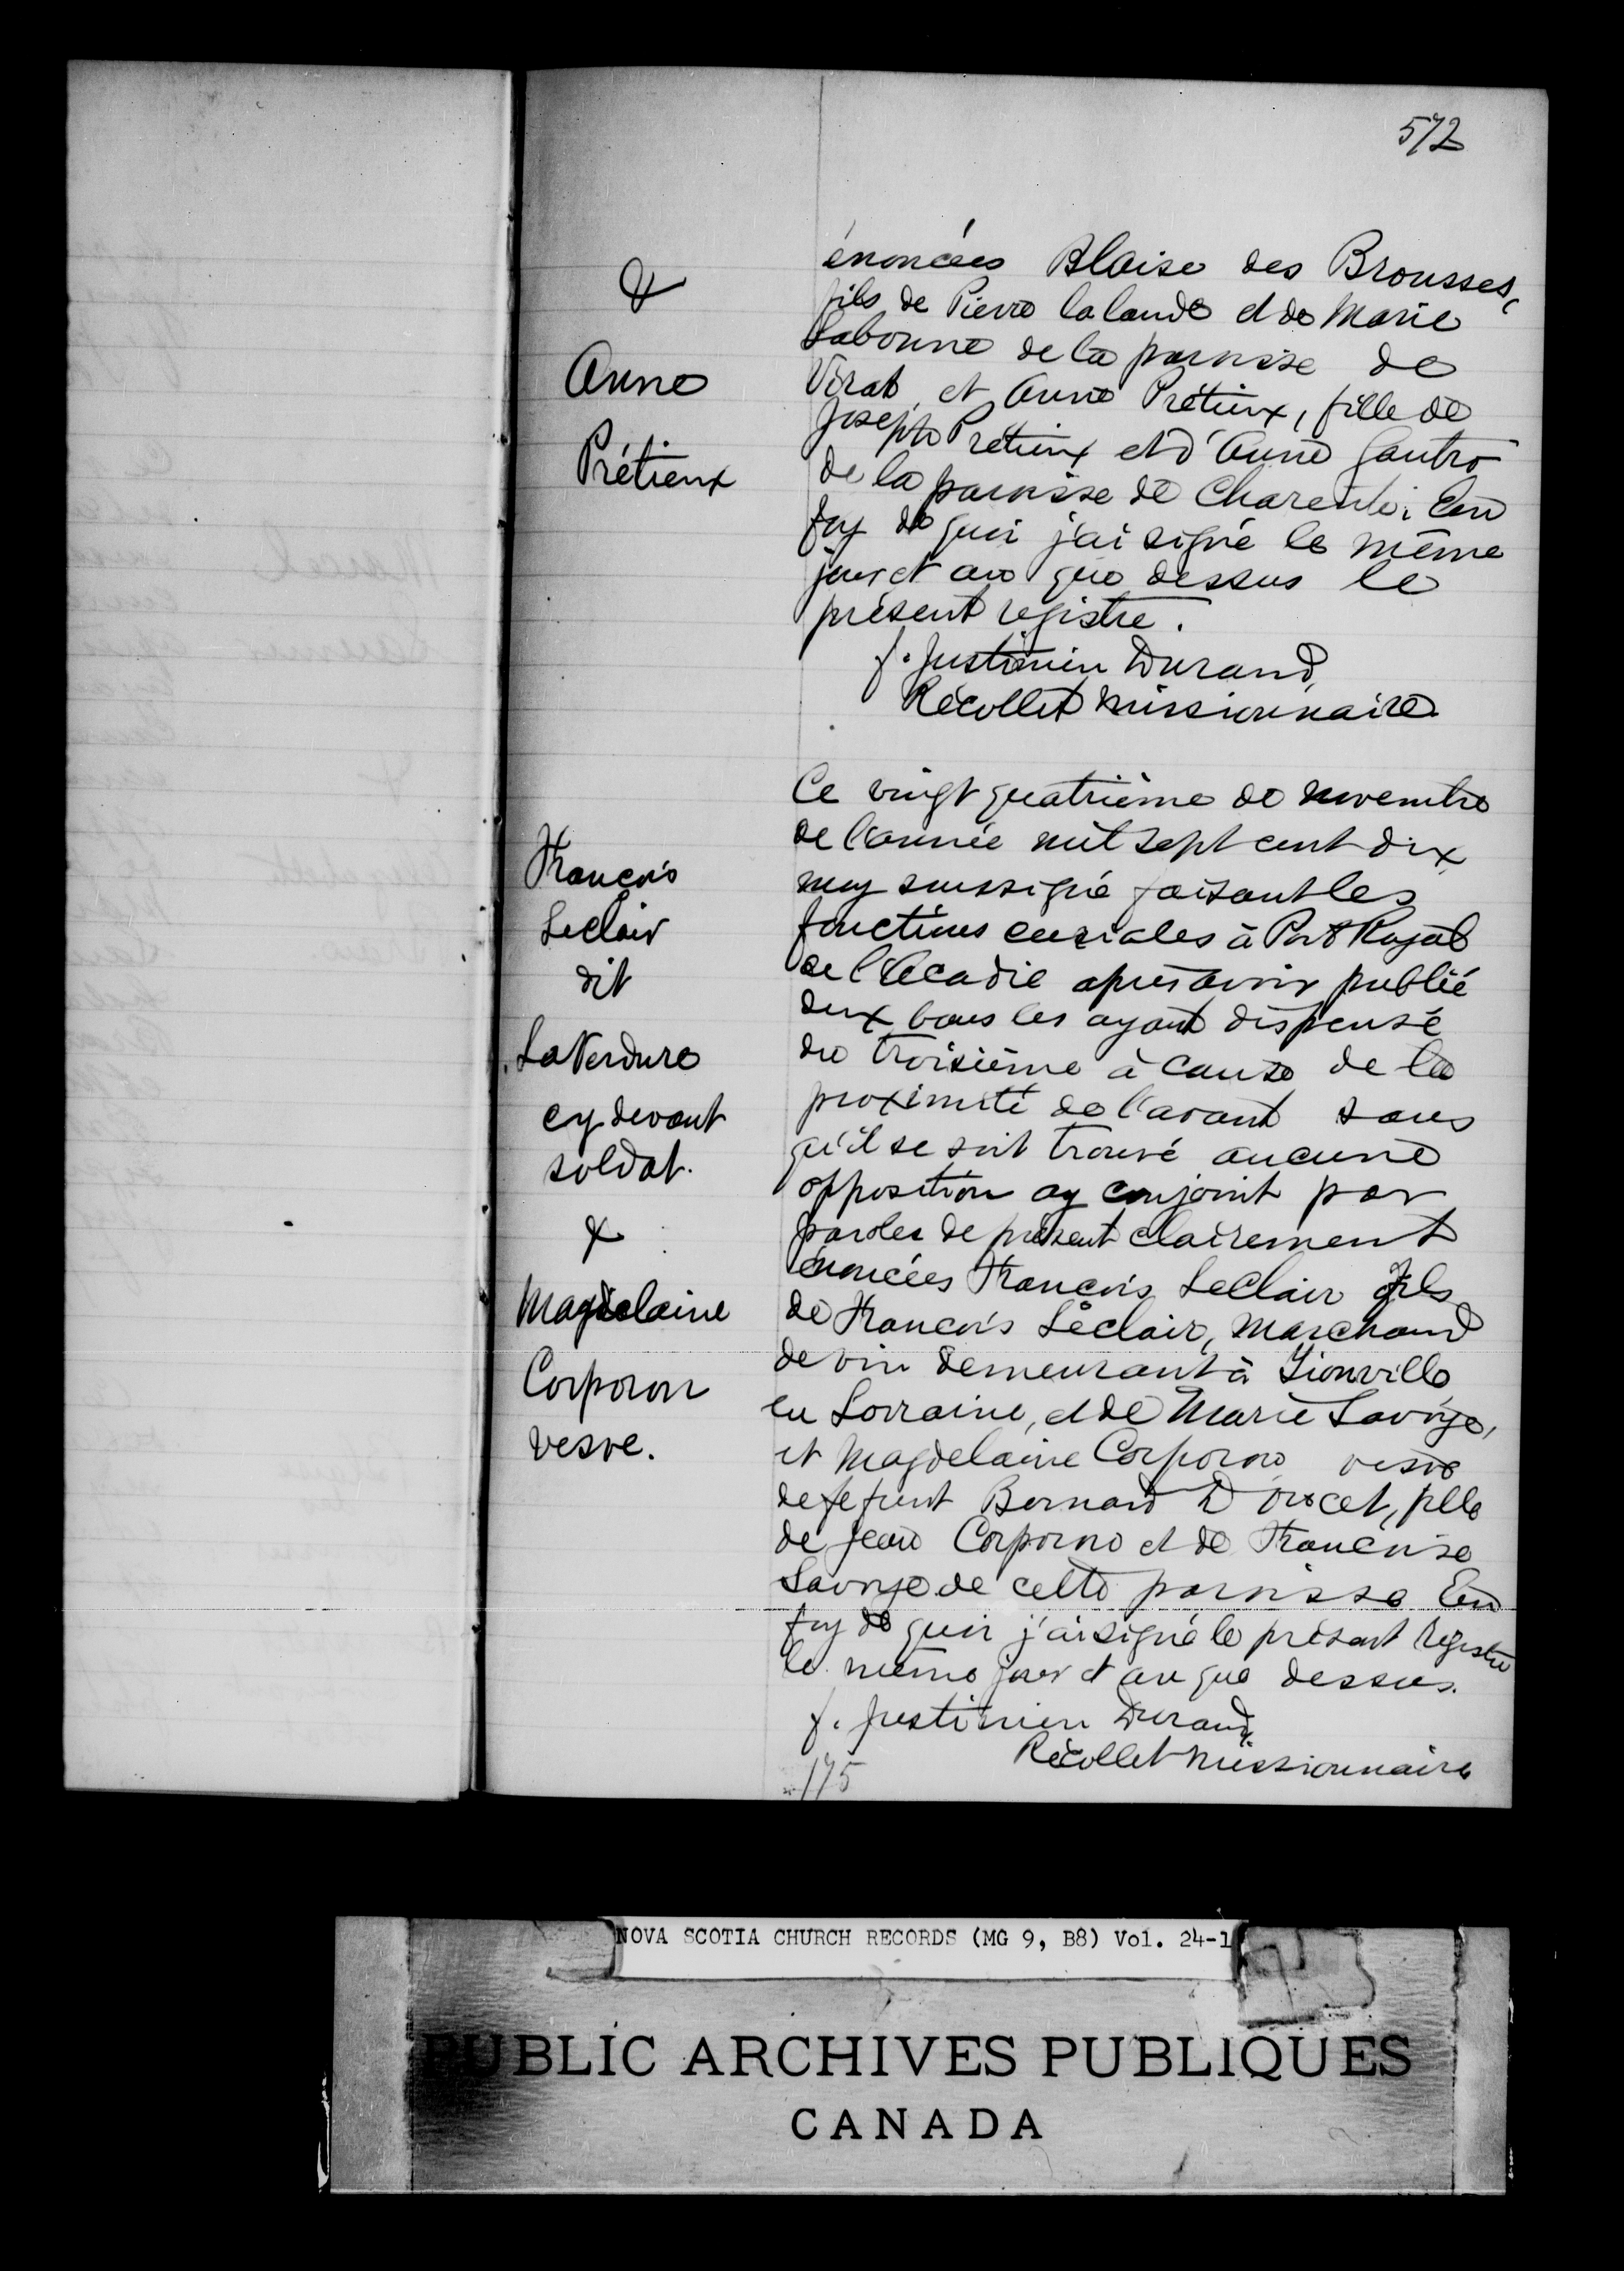 572
&
Anne
Prétieux
énoncées Blaise des Brousses,
fils de Pierre lalande et de Marie
Labonne de la paroisse de
Virat, et Anne Prétieux, fille de
Joseph Prétieux et d'Anne Gautro
de la paroisse de Charenti. En
foy de quoi j'ai signé le même
jour et an que dessus le
présent registre.
f. Justinien Durand,
Récollet Missionnaire
François
Leclair
dit
LaVerdure
cy devant
soldat.
&
Magdelaine
Corporon
vesve.
Ce vingt quatrième de novembre
de l'année mil sept cent dix
moy soussigné faisant les
fonctions curiales à Port Royal
de l'Acadie après avoir publié
deux bans les ayant dispensé
du troisième à cause de la
proximité de l'avant sans
qu'il se soit trouvé aucune
opposition ay conjoint par
paroles de présent clairement
énoncées François LeClair fils
de François Leclair, Marchand
de vin demeurant à Lionville
en Lorraine, et de Marie Savoye,
et Magdelaine Corporon vesve
de fefunt Bernard Doucet, fille
de Jean Corporon et de Françoise
Savoye de cette paroisse En
foy de quoi j'ai signé le présent registre
le même jour et an que dessus.
f. Justinien Durand,
Récollet Missionnaire
175
NOVA SCOTIA CHURCH RECORDS (MG 9, B8) Vol. 24-1
PUBLIC ARCHIVES PUBLIQUES
CANADA